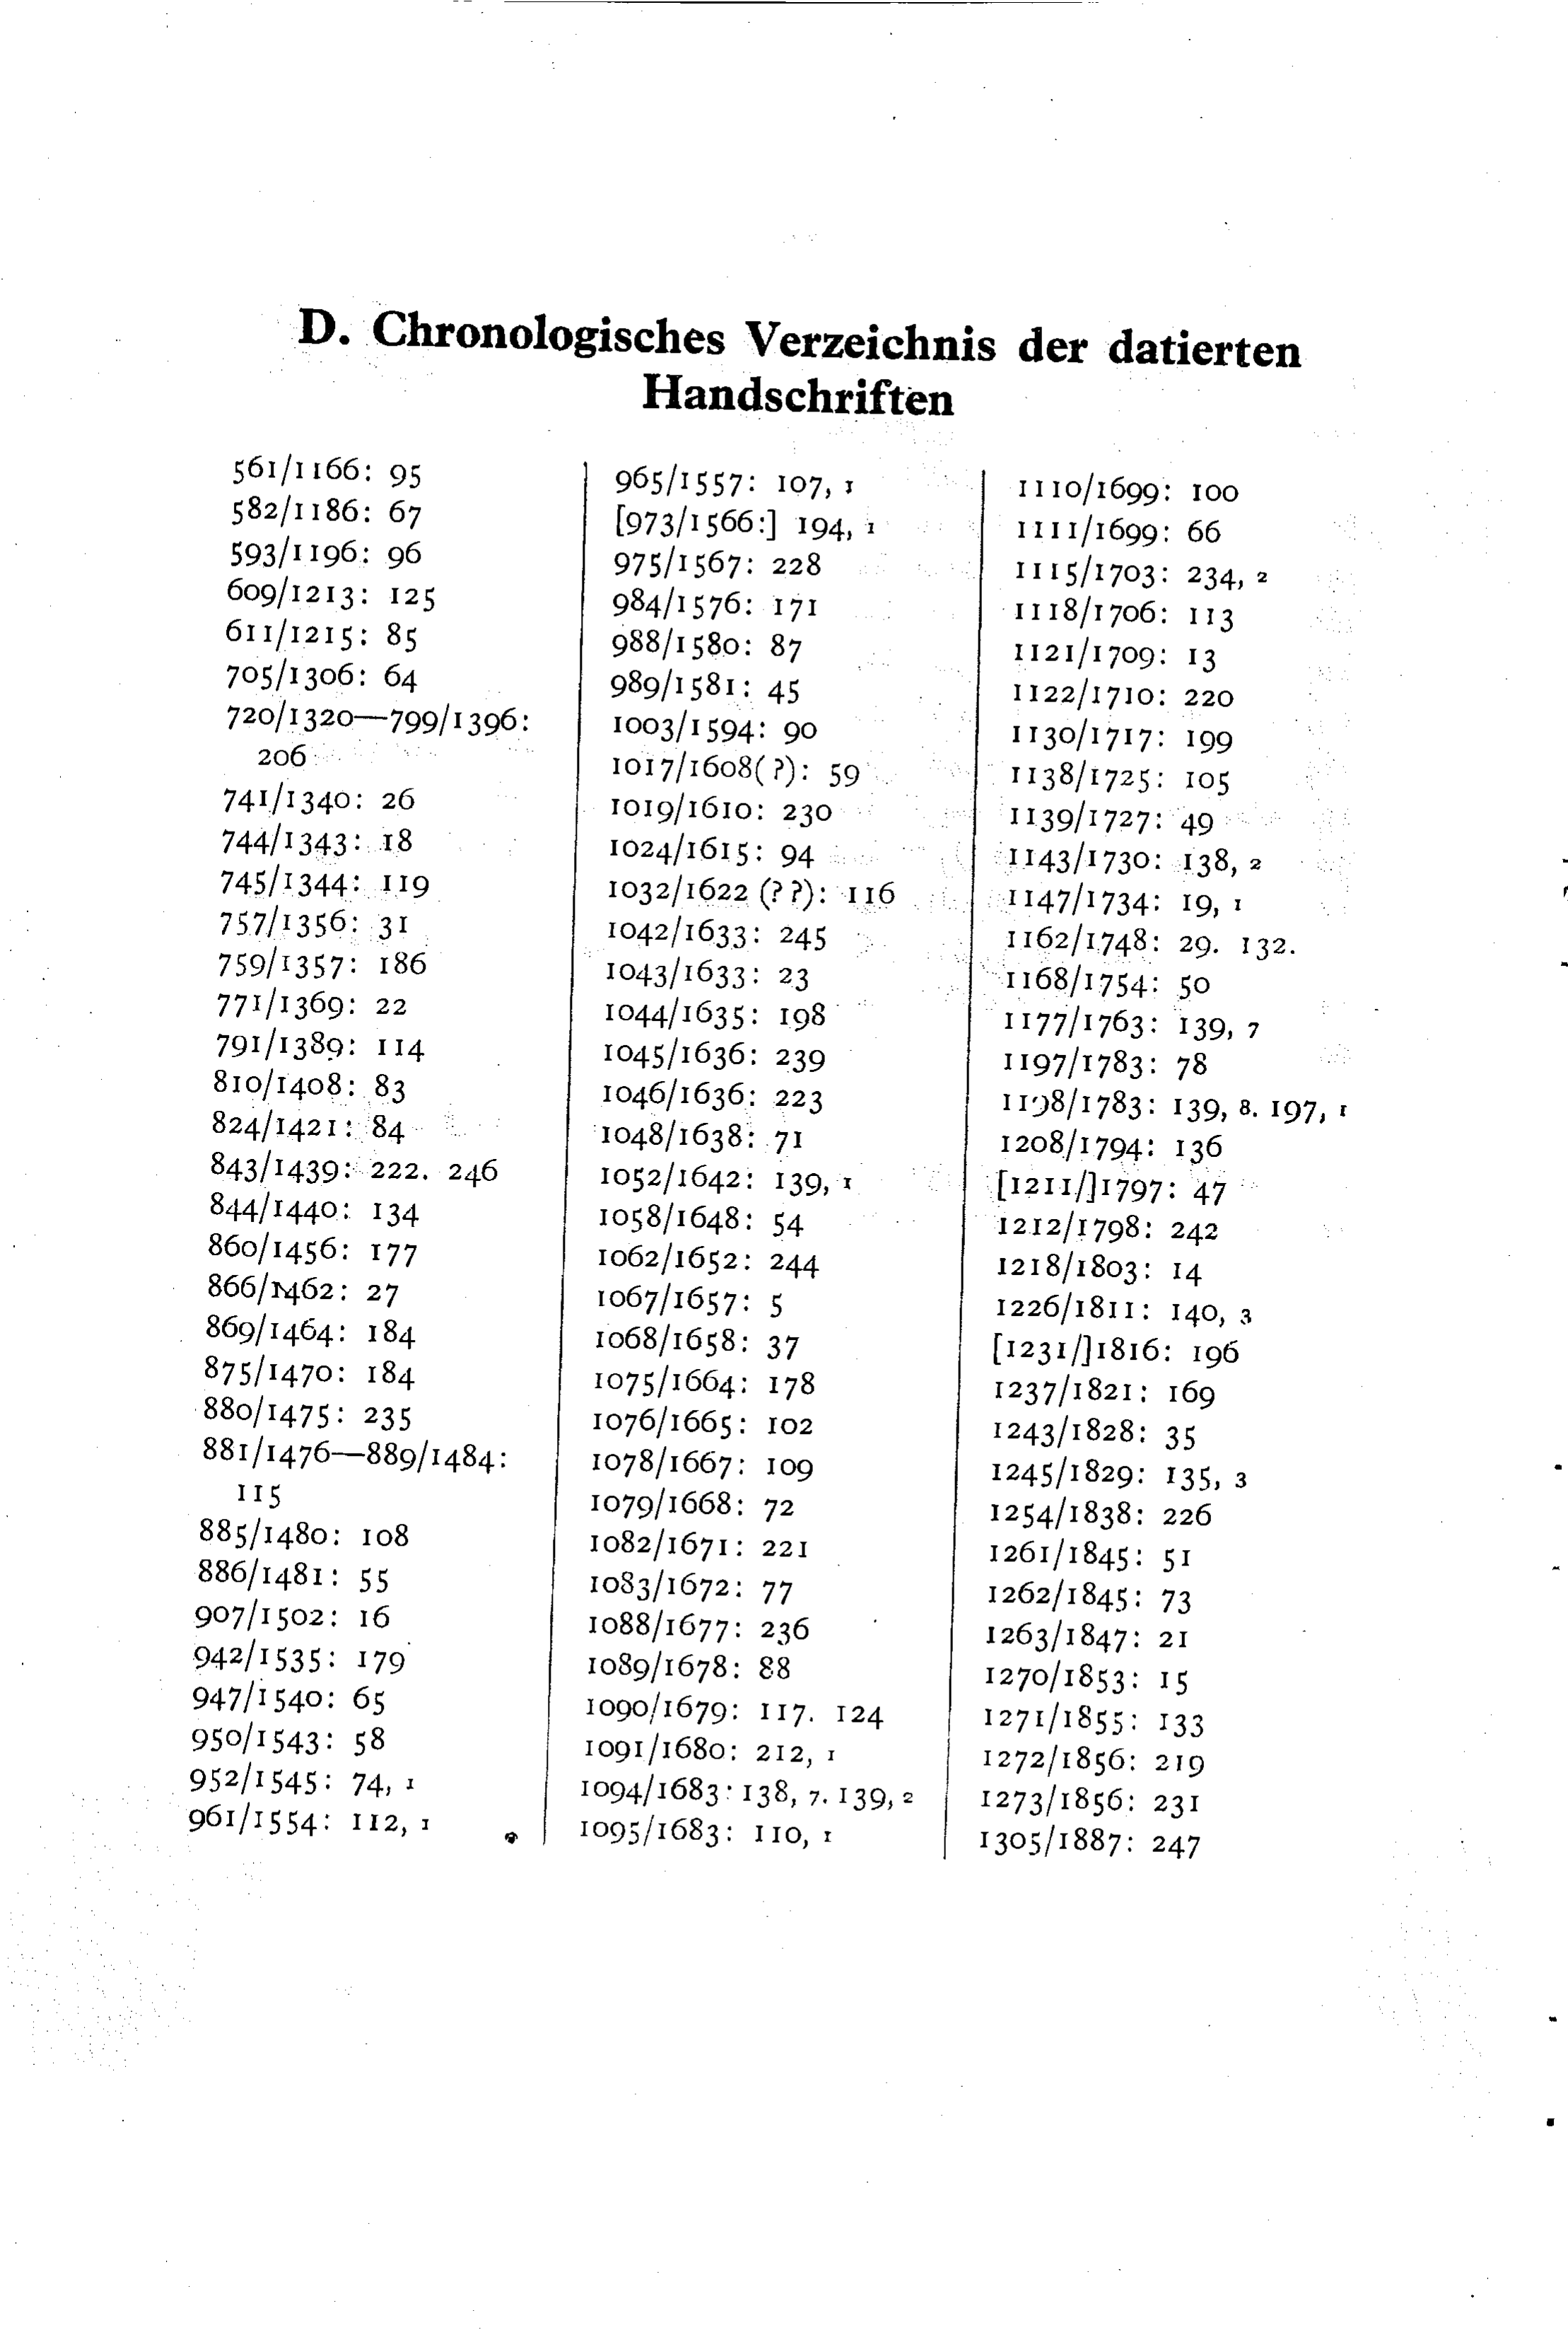 D. Chronologisches Verzeichnis der datierten
Handschriften
561/1166: 95
582/1186: 67
593/1196: 96
609/1213: 125
611/1215: 85
705/1306: 64
720/1320—799/1396:
206
741/1340: 26
744/1343: 18
745/1344: 119
757/1356: 31
759/1357: 186
771/1369: 22
791/1389: 114
810/1408: 83
824/1421: 84
843/1439: 222. 246
844/1440: 134
860/1456: 177
866/1462: 27
869/1464: 184
875/1470: 184
880/1475: 235
881/1476—889/1484:
115
885/1480: 108
886/1481: 55
907/1502: 16
942/1535: 179
947/1540: 65
950/1543: 58
952/1545: 74, 1
961/1554: 112, 1
965/1557: 107, 1
[973/1566:] 194, 1
975/1567: 228
984/1576: 171
988/1580: 87
989/1581: 45
1003/1594: 90
1017/1608(?): 59
1019/1610: 230
1024/1615: 94
1032/1622 (??): 116
1042/1633: 245
1043/1633: 23
1044/1635: 198
1045/1636: 239
1046/1636: 223
1048/1638: 71
1052/1642: 139, 1
1058/1648: 54
1062/1652: 244
1067/1657: 5
1068/1658: 37
1075/1664: 178
1076/1665: 102
1078/1667: 109
1079/1668: 72
1082/1671: 221
1083/1672: 77
1088/1677: 236
1089/1678: 88
1090/1679: 117. 124
1091/1680: 212, 1
1094/1683: 138, 7. 139, 2
1095/1683: 110, 1
1110/1699: 100
1111/1699: 66
1115/1703: 234, 2
1118/1706: 113
1121/1709: 13
1122/1710: 220
1130/1717: 199
1138/1725: 105
1139/1727: 49
1143/1730: 138, 2
1147/1734: 19, 1
1162/1748: 29. 132.
1168/1754: 50
1177/1763: 139, 7
1197/1783: 78
1198/1783: 139, 8. 197, 1
1208/1794: 136
[1211/]1797: 47
1212/1798: 242
1218/1803: 14
1226/1811: 140, 3
[1231/]1816: 196
1237/1821: 169
1243/1828: 35
1245/1829: 135, 3
1254/1838: 226
1261/1845: 51
1262/1845: 73
1263/1847: 21
1270/1853: 15
1271/1855: 133
1272/1856: 219
1273/1856: 231
1305/1887: 247